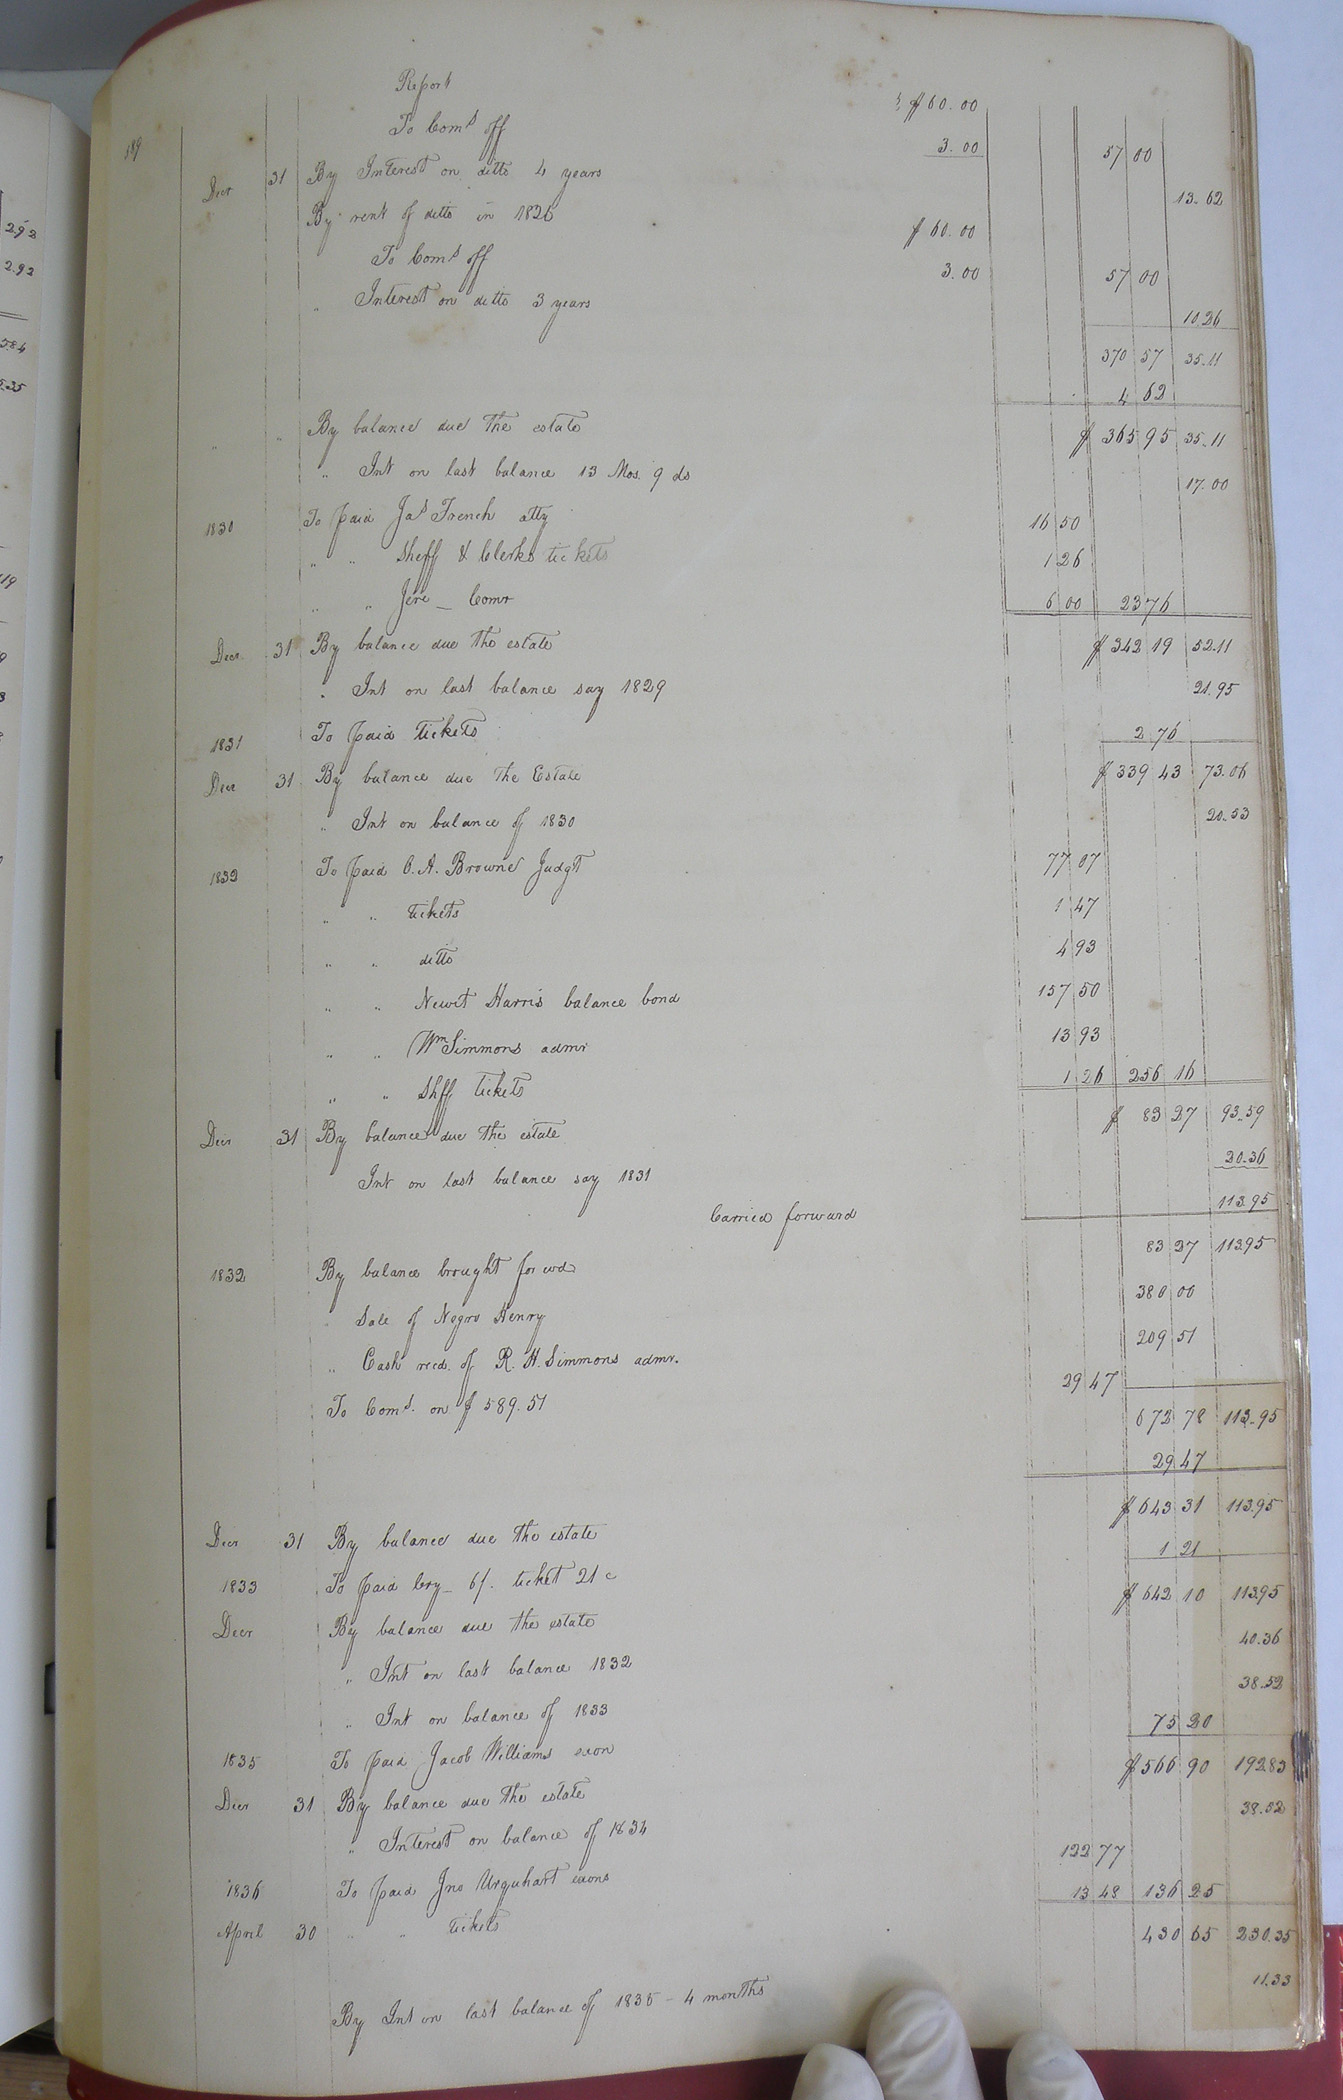 Report $60.00
189 To Comd off 3.00 57 00
Decr 31 By Interest on ditto 4 years 13.62
By rent of ditto in 1826 $60.00
To Comd off 3.00 57 00
" Interest on ditto 3 years 10.26
370 57 35.11
4 62
" " By balance due the estate $365 95 35.11
" Int on last balance 13 Mos. 9 ds 17.00
1830 To paid Jas French atty 16 50
" " Sheff & Clerks tickets 1 26
" " Jere Comr 6 00 23 76
Decr 31 By balance due the estate $342 19 52.11
" Int on last balance say 1829 21.95
1831 To paid tickets 2 76
Decr 31 By balance due the Estate $339 43 73.06
" Int on balance of 1830 20.53
1832 To paid O. A. Browne Judgt 77 07
" " tickets 1 47
" " ditto 4 93
" " Newit Harris balance bond 157 50
" " Wm Simmons admr 13 93
" " Shff tickets 1 26 256 16
Decr 31 By balance due the estate $83 27 93.59
Int on last balance say 1831 20.36
Carried forward 113.95
1832 By balance brought forwd 83 27 113.95
Sale of Negro Henry 380 00
" Cash recd. of R. H. Simmons admr. 209 51
To Comd. on $589.51 29 47
672 78 113.95
29 47
Decr 31 By balance due the estate $643 31 113.95
1833 To paid Cry 6/. ticket 21 c 1 21
Decr By balance due the estate $642 10 113.95
" Int on last balance 1832 40.36
" Int on balance of 1833 38.52
1835 To paid Jacob Williams exon 75 20
Decr 31 By balance due the estate $566 90 192.83
" Interest on balance of 1834 38.52
1836 To paid Jno Urquhart exons 122 77
April 30 " " tickets 13 48 136 25
430 65 230.35
By Int on last balance of 1835 - 4 months 11.33
292
2.92
584
5.35
119